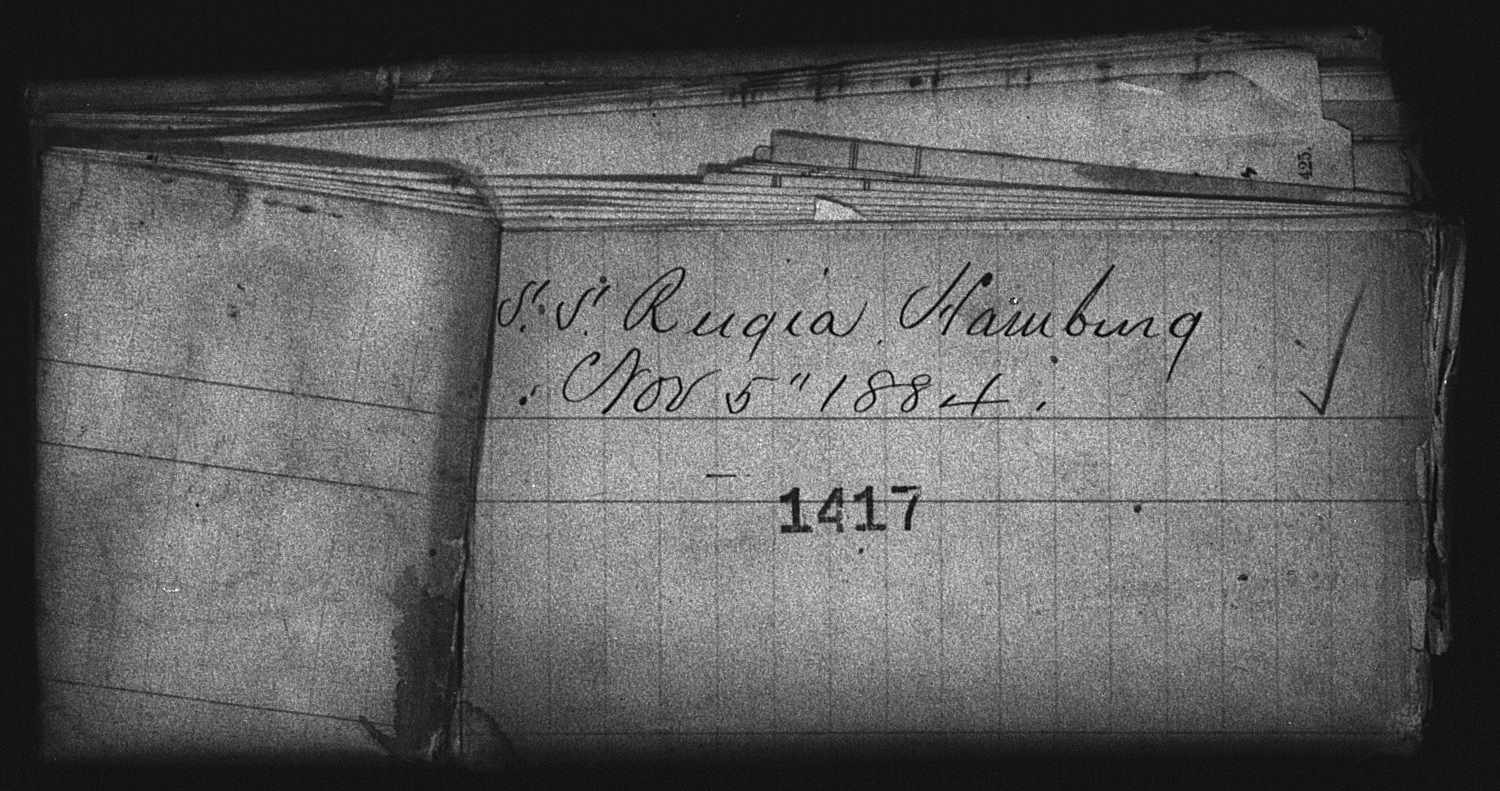 425.
S.S. Rugia Hamburg
Nov 5" 1884.
1417